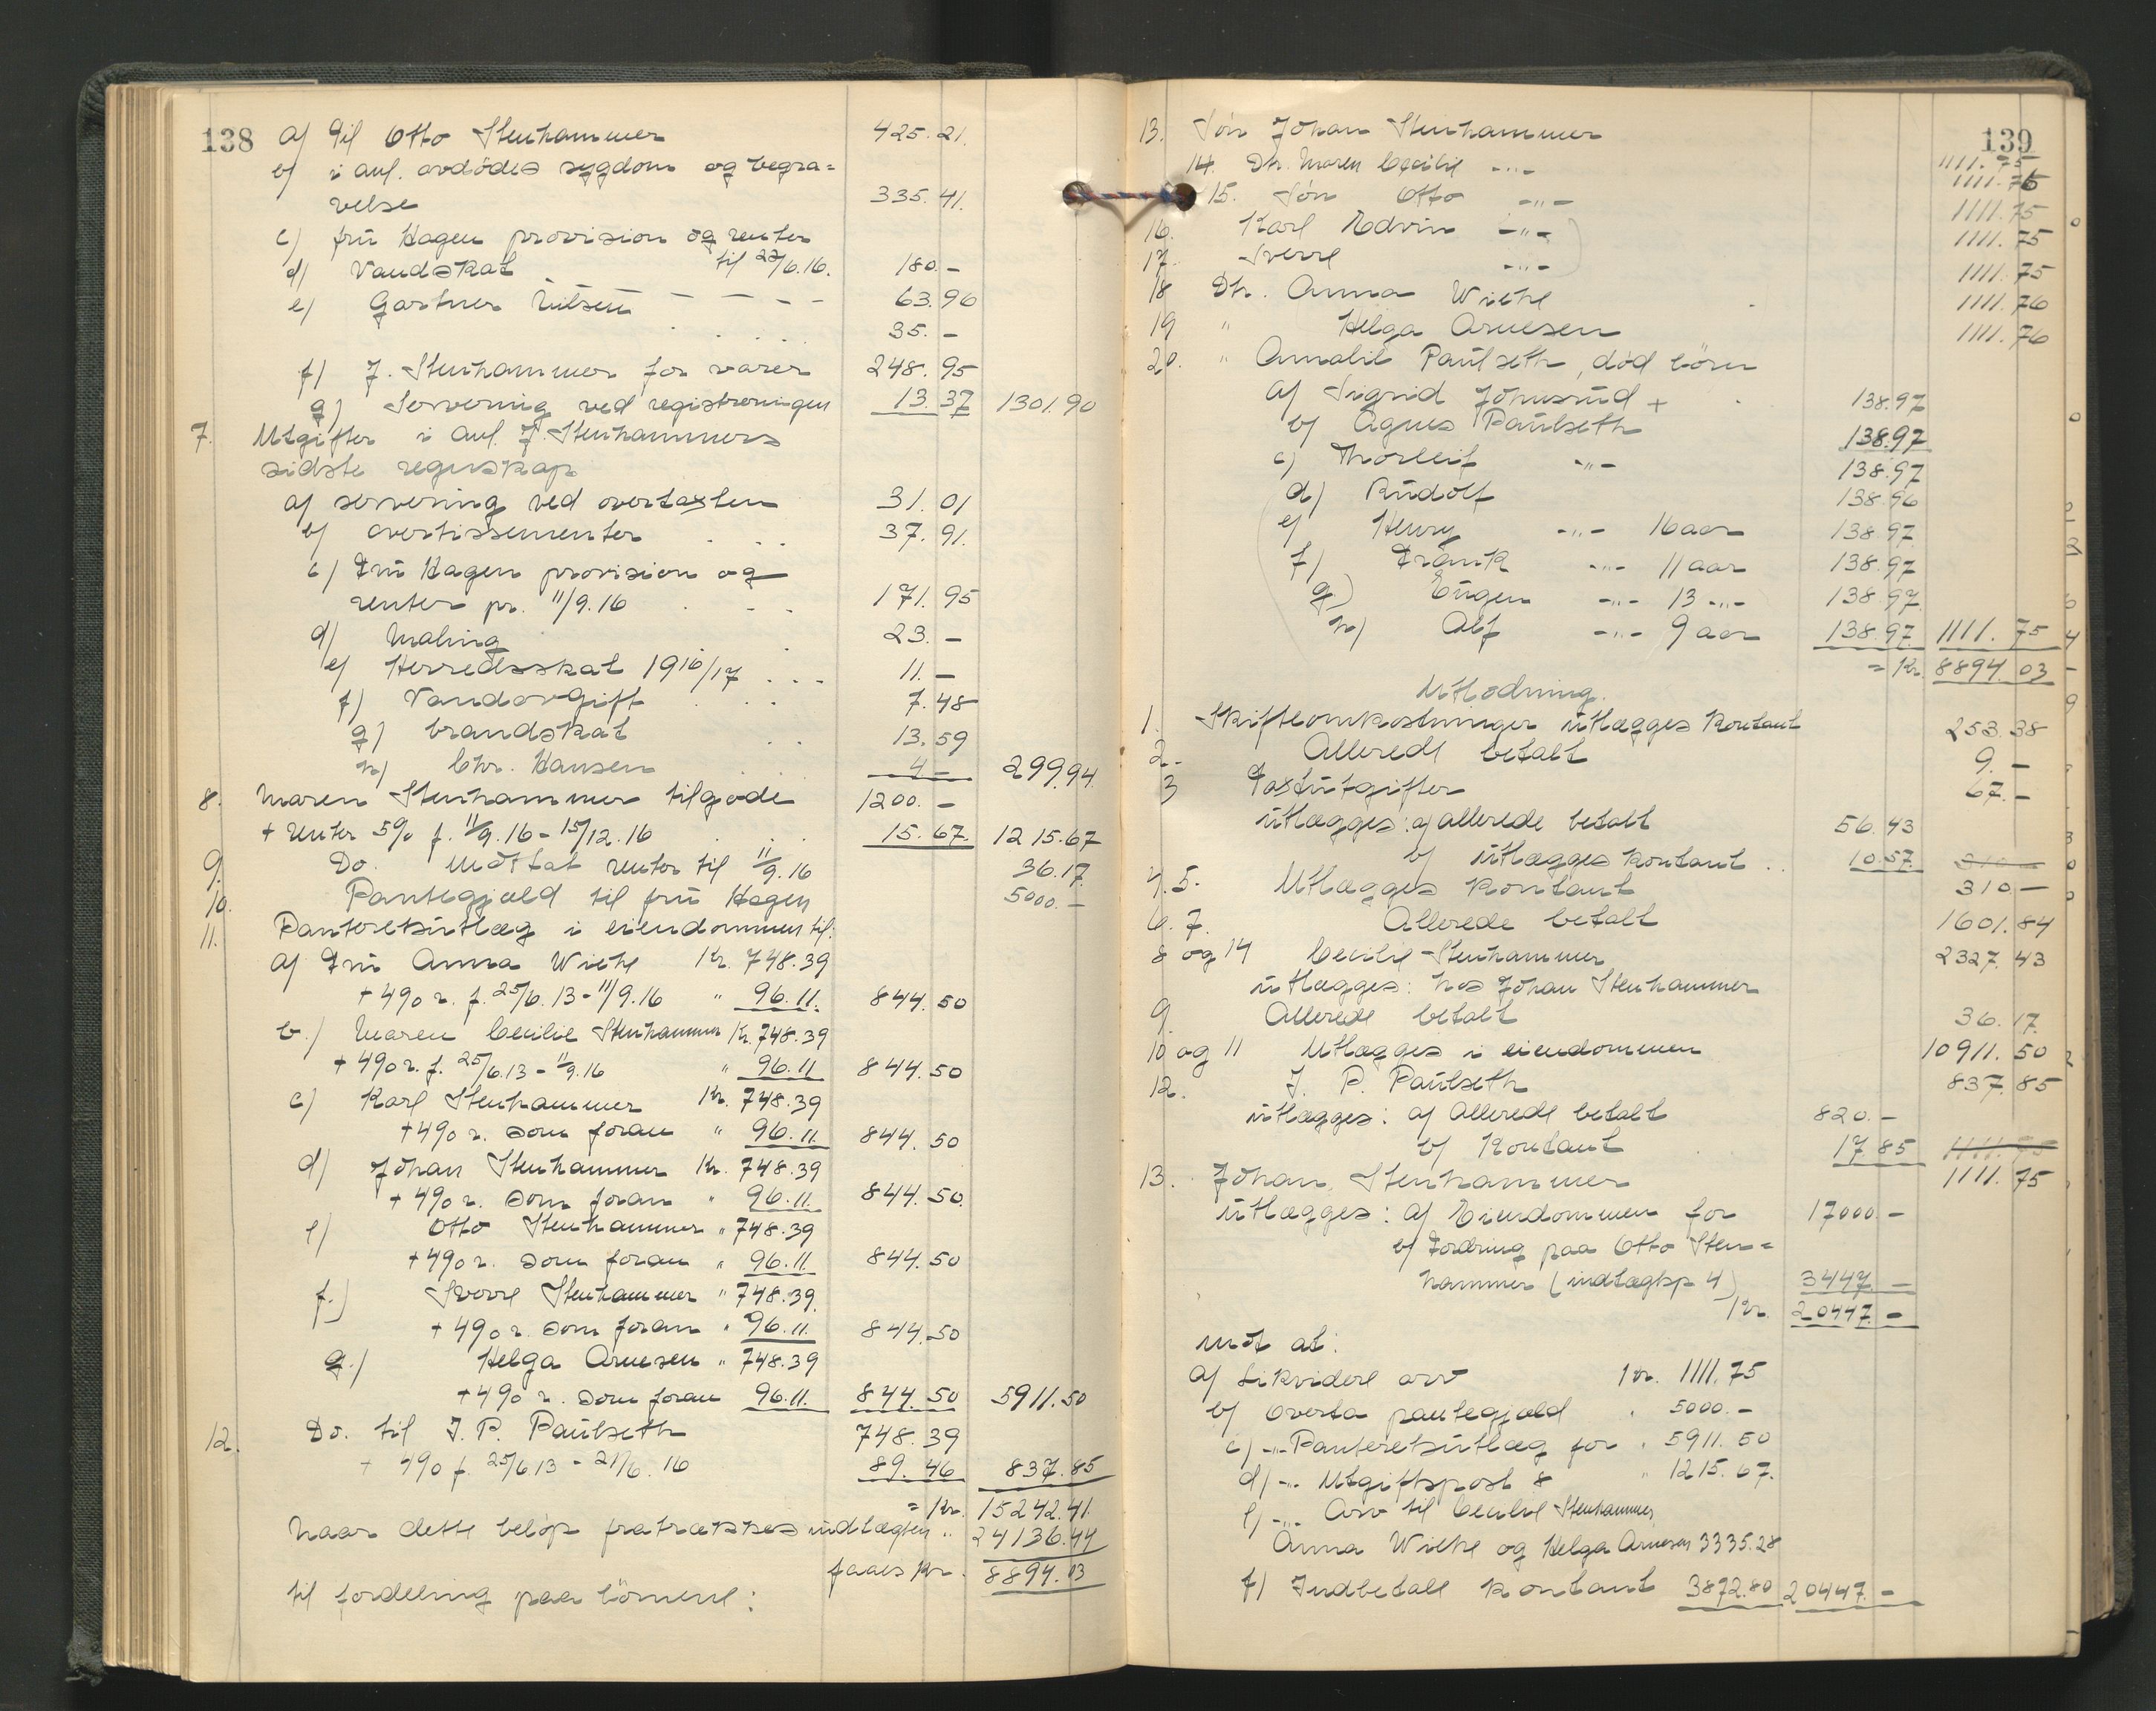 138
a) Til Otto Stenhammer 425.21.
b) i anl. avdødes sygdom og begra=
velse 335.41.
c) fru Hagen provision og renter
til 22/6.16. 180.-
d) Vandskat 63.96
e) Gartner Nilsen 35.-
f) J. Stenhammer for varer 248.95
g) Servering ved registreringen 13.37 1301.90
7. Utgifter i anl. J. Stenhammers
sidste regnskap
a) servering ved overtaxten 31.01
b) avertissementer 37.91.
c) Fru Hagen provision og
renter pr. 11/9.16 171.95
d) Maling 23.-
e) Herredsskat 1916/17 11.-
f) Vandavgift 7.48
g) brandskat 13.59
h) Chr. Hansen 4- 299.94.
8. Maren Stenhammer tilgode 1200.-
+ renter 5% f. 11/9.16 - 15/12.16 15.67. 1215.67
9. Do. mottat renter til 11/9.16 36.17.
10. Pantegjæld til fru Hagen 5000.-
11. Panteretsutlæg i eiendommen til:
a) Fru Anna Wiehe Kr. 748.39
+ 4% r. f. 25/6.13 - 11/9.16 " 96.11. 844.50
b.) Maren Cecilie Stenhammer Kr. 748.39
+ 4% r. f. 25/6.13 - 11/9.16 " 96.11 844.50
c) Karl Stenhammer Kr. 748.39
+ 4% r. som foran " 96.11. 844.50
d) Johan Stenhammer Kr. 748.39
+ 4% r. som foran " 96.11. 844.50.
e) Otto Stenhammer " 748.39
+ 4% r. som foran " 96.11. 844.50
f.) Sverre Stenhammer " 748.39.
+ 4% r. som foran " 96.11. 844.50
g.) Helga Arnesen " 748.39
+ 4% r. som foran 96.11. 844.50 5911.50
12. Do. til J. P. Paulseth 748.39
+ 4% f. 25/6.13 - 21/6.16 89.46 837.85
= Kr. 15242.41.
Naar dette beløp fratrækkes indtægten " 24136.44
faaes Kr. 8894.03
til fordeling paa børnene:
139
13. Søn Johan Stenhammer 1111.75
14. Dtr. Maren Cecilie -"- 1111.76
15. Søn Otto -"- 1111.75
16. Karl Edvin -"- 1111.75
17. Sverre -"- 1111.75
18 Dtr. Anna Wiehe 1111.76
19 " Helga Arnesen 1111.76
20. " Annabil Paulseth, død børn
a) Sigrid Johnsrud + 138.97
b) Agnes Paulseth 138.97
c) Thorleif -"- 138.97
d) Rudolf 138.96
e) Henry -"- 16 aar 138.97
f) Frank -"- 11 aar 138.97
g) Eugen -"- 13 -"- 138.97
h) Alf -"- 9 aar 138.97 1111.75
= Kr. 8894.03
Utlodning.
1. Skifteomkostninger utlægges kontant 253.38
2. Allerede betalt 9.-
3 Postutgifter 67.-
utlægges: a) allerede betalt 56.43
b) utlægges kontant 10.57. 310.-
4. 5. Utlægges kontant 310.-
6. 7. Allerede betalt 1601.84
8 og 14 Cecilie Stenhammer 2327.43
utlægges: hos Johan Stenhammer
9. Allerede betalt 36.17.
10 og 11 Utlægges i eiendommen 10911.50
12. J. P. Paulseth 837.85
utlægges: a) Allerede betalt 820.-
b) Kontant 17.85 1111.75
13. Johan Stenhammer 1111.75
utlægges: a) Eiendommen for 17000.-
b) Fordring paa Otto Sten=
hammer (indtægtsp 4) 3447.-
Kr. 20447.-
mot at:
a) Likvidere arv Kr. 1111.75
b) Overta pantegjæld " 5000.-
c) -"- Panteretsutlæg for " 5911.50
d) -"- Utgiftspost 8 " 1215.67.
e) -"- Arv til Cecilie Stenhammer,
Anna Wiehe og Helga Arnesen 3335.28
f) Indbetale kontant 3872.80 20447.-